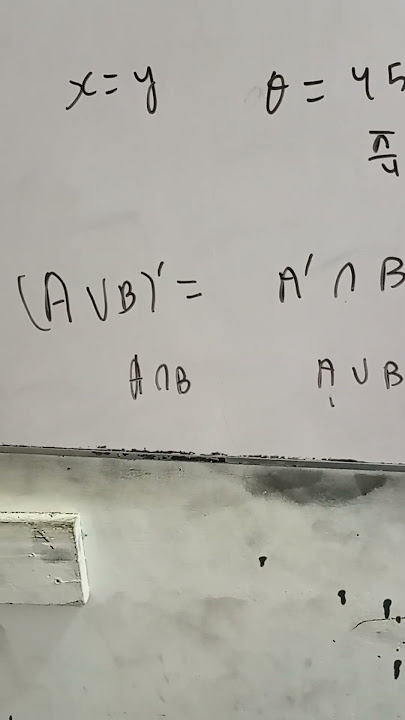 x = y θ = 45
π/4
(A ∪ B)' = A' ∩ B
A ∩ B A ∪ B